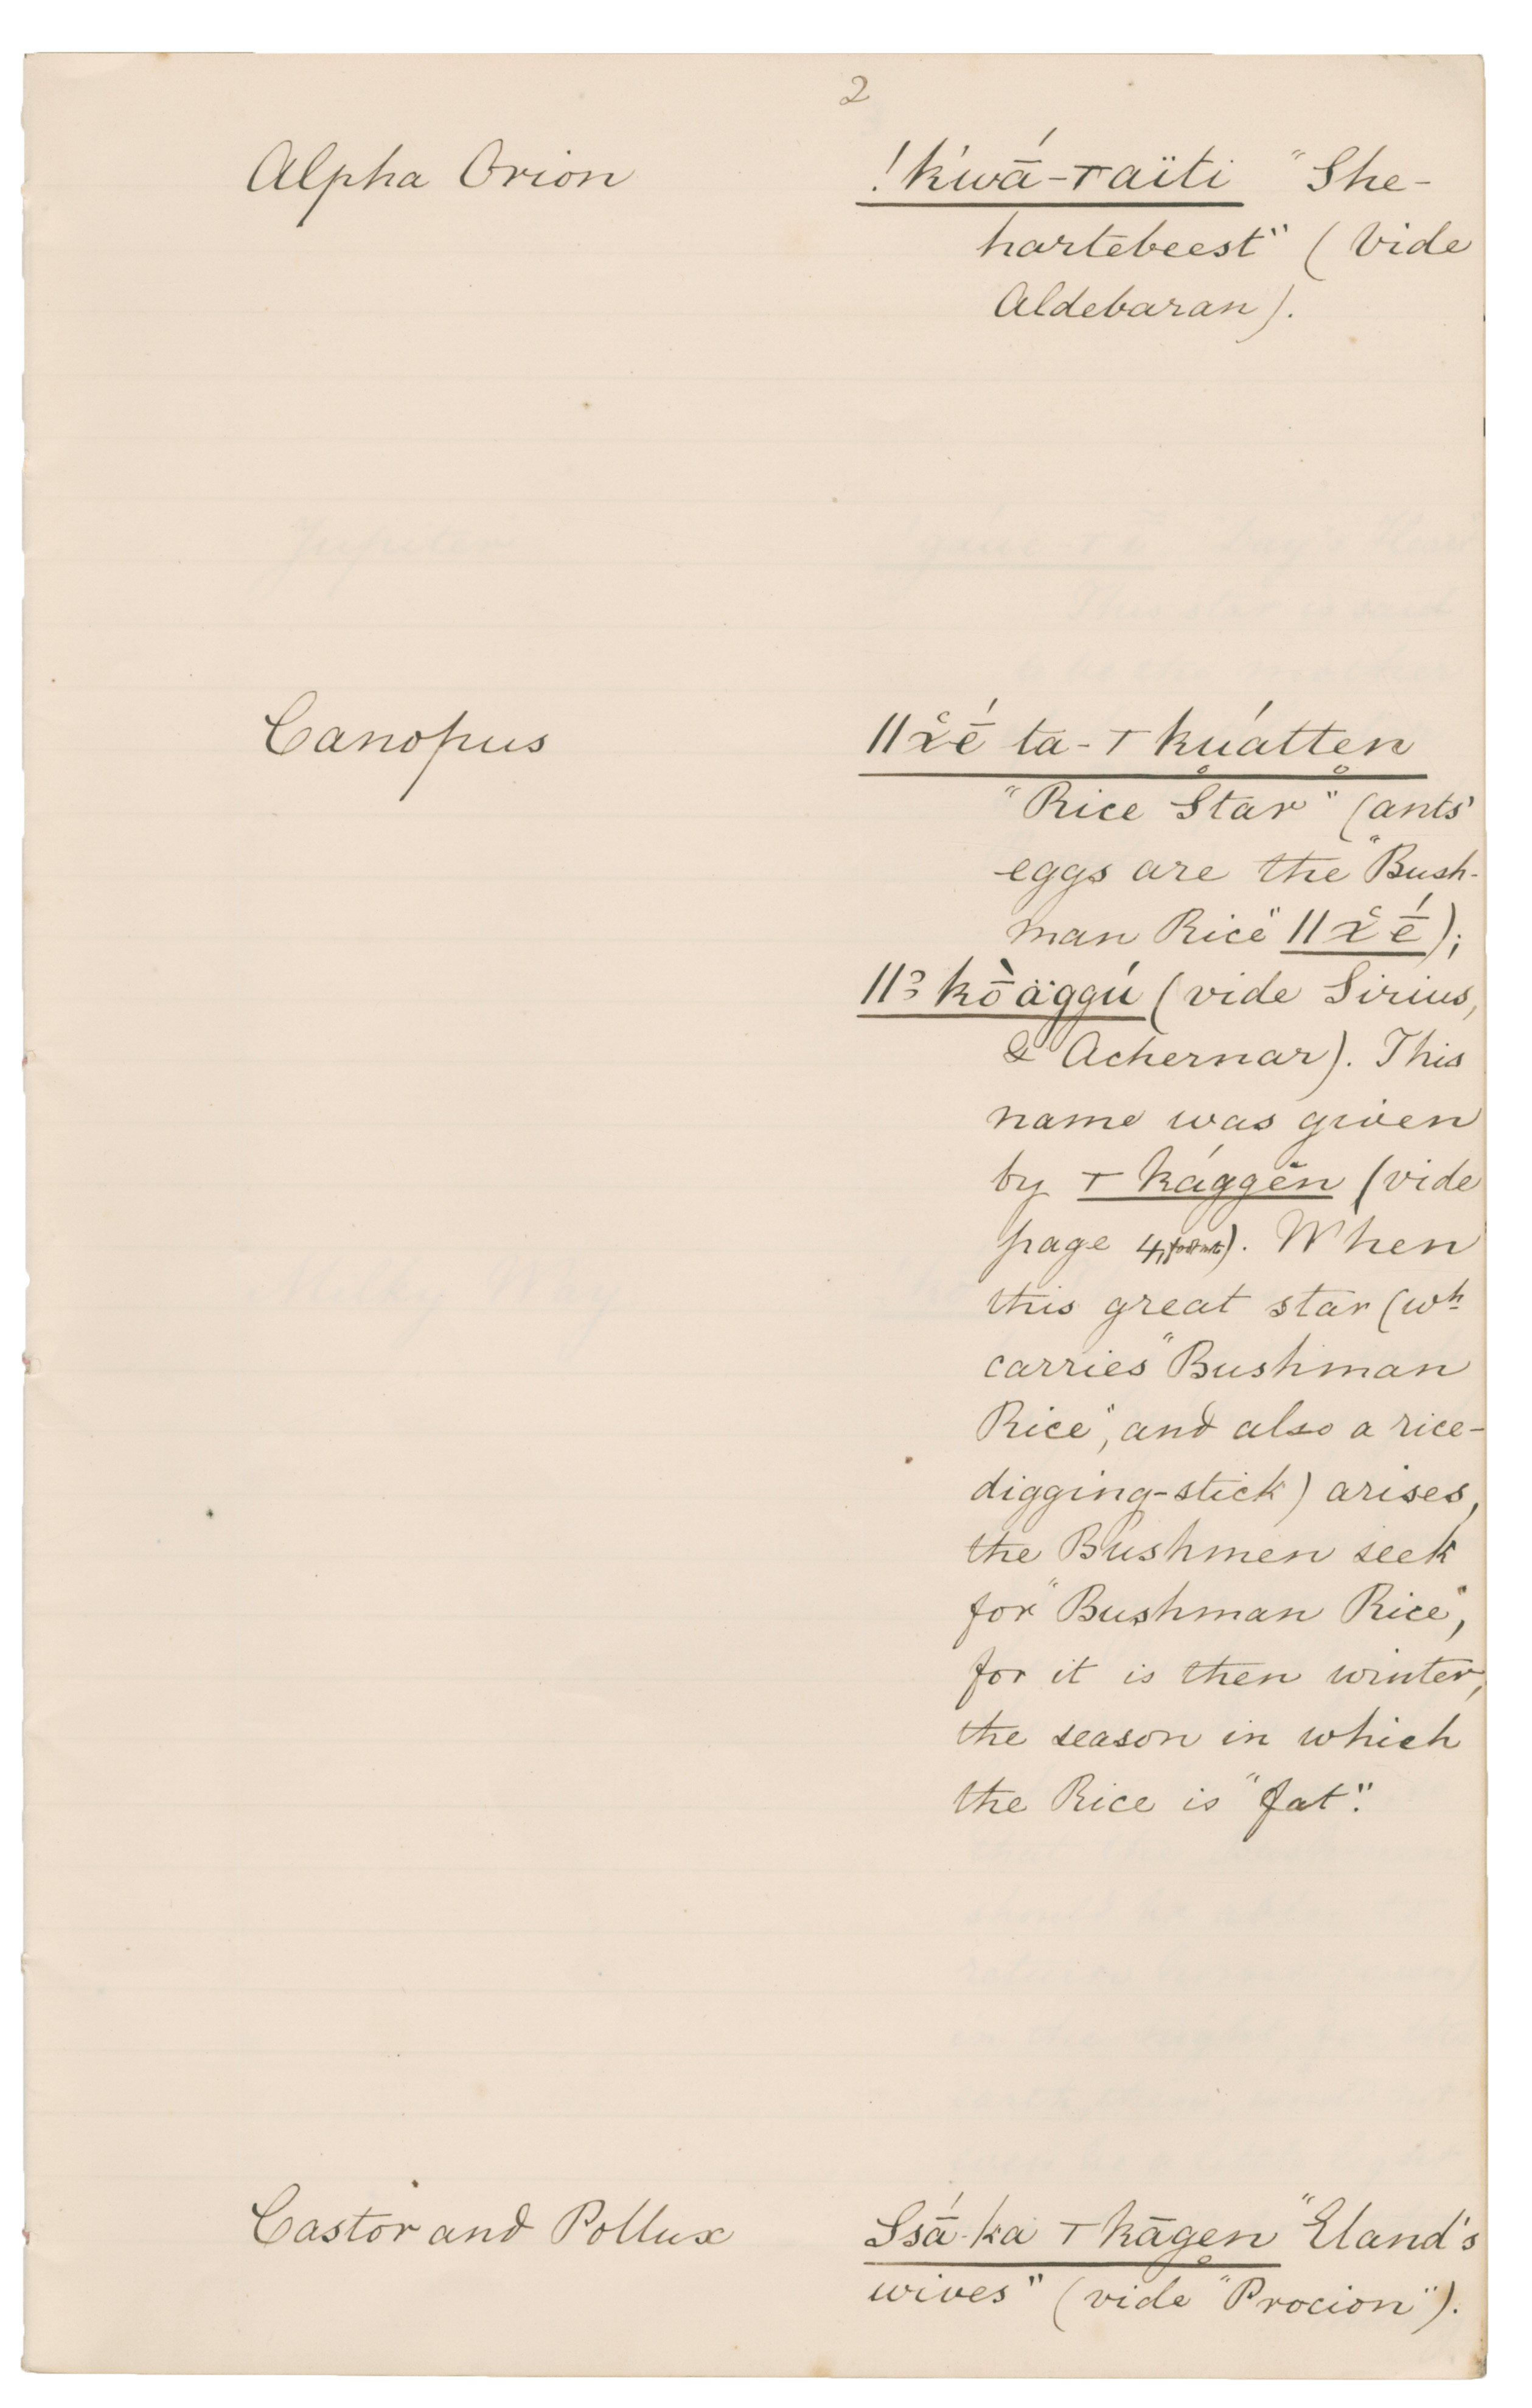 2
Alpha Orion !k'wā́-⊤aïti "She-
hartebeest" (Vide
Aldebaran).
Canopus ǁχ̆ḗ ta-⊤ku̥átte̥n
"Rice Star" (ants'
eggs are the "Bush-
man Rice" ǁχ̆ḗ);
ǁɜkṑäggú (vide Sirius,
& Achernar). This
name was given
by ⊤kággĕn (vide
page 4, footnote). When
this great star (wʰ
carries "Bushman
Rice", and also a rice-
digging-stick) arises,
the Bushmen seek
for "Bushman Rice",
for it is then winter,
the season in which
the Rice is "fat".
Castor and Pollux Ssā́-ka ⊤kāge̥n "Eland's
wives" (vide "Procion").